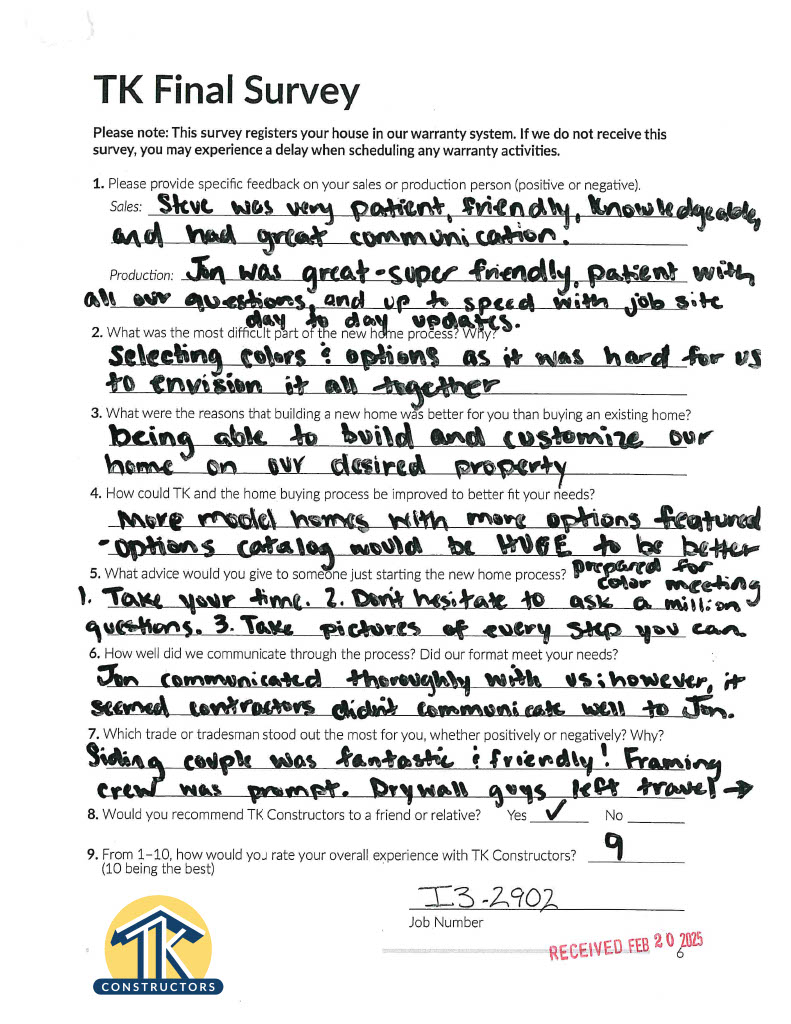 TK Final Survey
Please note: This survey registers your house in our warranty system. If we do not receive this
survey, you may experience a delay when scheduling any warranty activities.
1. Please provide specific feedback on your sales or production person (positive or negative).
Sales: Steve was very patient, friendly, knowledgeable,
and had great communication.
Production: Jon was great-super friendly, patient with
all our questions, and up to speed with job site
day to day updates.
2. What was the most difficult part of the new home process? Why?
Selecting colors & options as it was hard for us
to envision it all together
3. What were the reasons that building a new home was better for you than buying an existing home?
being able to build and customize our
home on our desired property
4. How could TK and the home buying process be improved to better fit your needs?
More model homes with more options featured
-options catalog would be HUGE to be better
prepared for
5. What advice would you give to someone just starting the new home process? color meeting
1. Take your time. 2. Don't hesitate to ask a million
questions. 3. Take pictures of every step you can
6. How well did we communicate through the process? Did our format meet your needs?
Jon communicated thoroughly with us; however, it
seemed contractors didn't communicate well to Jon.
7. Which trade or tradesman stood out the most for you, whether positively or negatively? Why?
Siding couple was fantastic & friendly! Framing
crew was prompt. Drywall guys left travel →
8. Would you recommend TK Constructors to a friend or relative? Yes ✓ No
9. From 1–10, how would you rate your overall experience with TK Constructors? 9
(10 being the best)
I3-2902
Job Number
RECEIVED FEB 20 2025
6
TK
CONSTRUCTORS